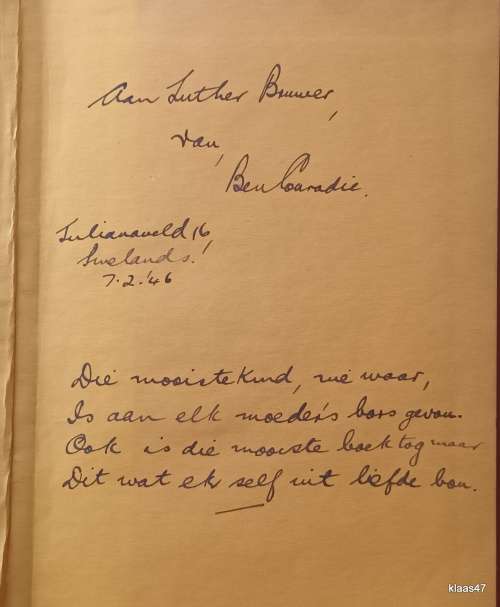 Aan Luther Brouwer,
van,
Ben Paradie.
Julianaveld 16,
Smelands.
7.2.'46
Die mooiste kind, nie waar,
Is aan elk moeder's bors gevou.
Ook is die mooiste boek tog maar
Dit wat ek self uit liefde bou.
klaas47